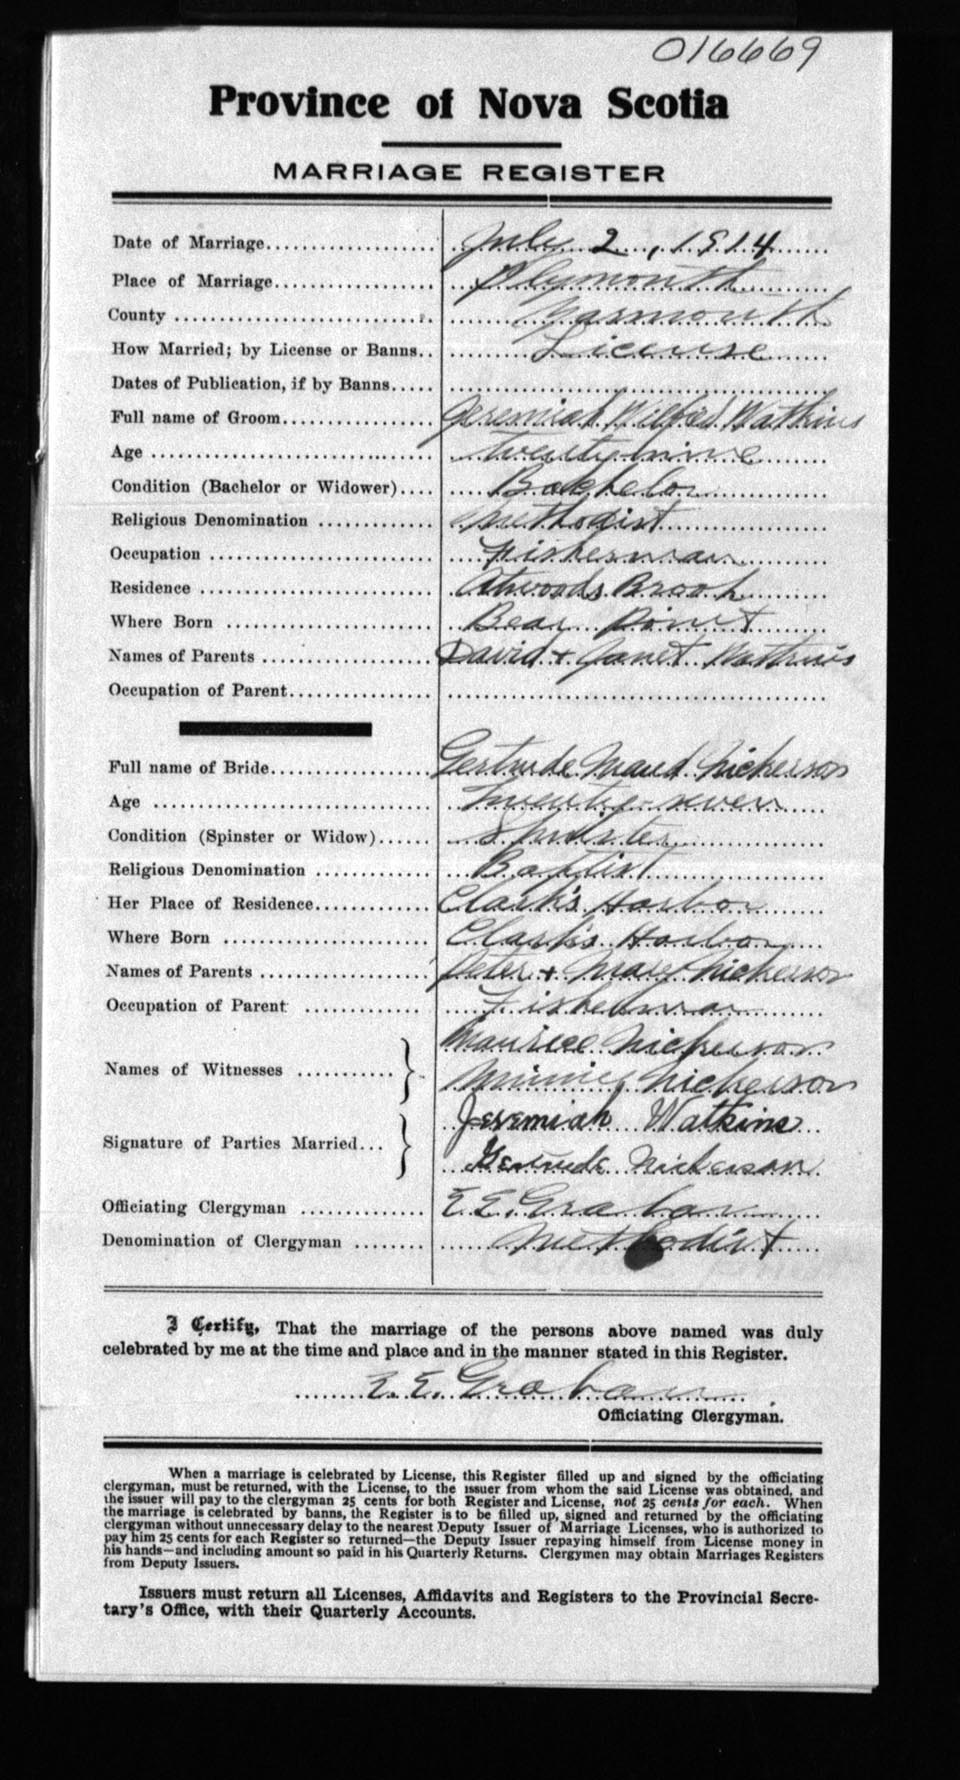 016669
Province of Nova Scotia
MARRIAGE REGISTER
Date of Marriage.................... July 2, 1914
Place of Marriage................... Plymouth
County .............................. Yarmouth
How Married; by License or Banns.. License
Dates of Publication, if by Banns.....
Full name of Groom.................. Jeremiah Wilfred Watkins
Age ................................. twenty-nine
Condition (Bachelor or Widower).... Bachelor
Religious Denomination .............. Methodist
Occupation .......................... Fisherman
Residence ........................... Atwoods Brook
Where Born .......................... Bear Point
Names of Parents .................... David + Janet Watkins
Occupation of Parent.................
Full name of Bride................... Gertrude Maud Nickerson
Age ................................. Twenty-seven
Condition (Spinster or Widow)...... Spinster
Religious Denomination .............. Baptist
Her Place of Residence.............. Clark's Harbor
Where Born .......................... Clark's Harbor
Names of Parents .................... Peter + Mary Nickerson
Occupation of Parent ............... Fisherman
Maurice Nickerson
Names of Witnesses ...........
Minnie Nickerson
Jeremiah Watkins
Signature of Parties Married...
Gertrude Nickerson
Officiating Clergyman .............. E. E. Graham
Denomination of Clergyman ........ Methodist
I Certify, That the marriage of the persons above named was duly
celebrated by me at the time and place and in the manner stated in this Register.
E. E. Graham
Officiating Clergyman.
When a marriage is celebrated by License, this Register filled up and signed by the officiating
clergyman, must be returned, with the License, to the issuer from whom the said License was obtained, and
the issuer will pay to the clergyman 25 cents for both Register and License, not 25 cents for each. When
the marriage is celebrated by banns, the Register is to be filled up, signed and returned by the officiating
clergyman without unnecessary delay to the nearest Deputy Issuer of Marriage Licenses, who is authorized to
pay him 25 cents for each Register so returned—the Deputy Issuer repaying himself from License money in
his hands—and including amount so paid in his Quarterly Returns. Clergymen may obtain Marriages Registers
from Deputy Issuers.
Issuers must return all Licenses, Affidavits and Registers to the Provincial Secre-
tary's Office, with their Quarterly Accounts.